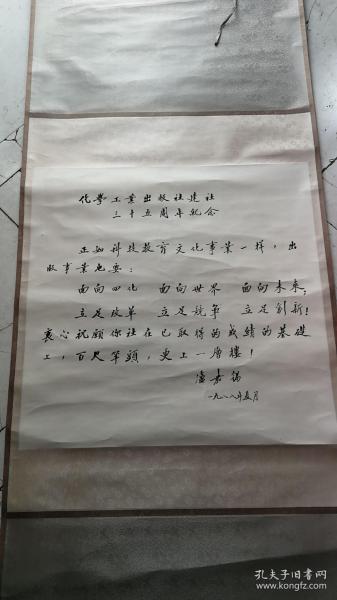 化學工業出版社建社
三十五周年紀念
正如科技教育文化事業一样，出
版事業也要：
面向四化 面向世界 面向未来；
立足改革 立足競争 立足創新！
衷心祝願你社在已取得的成績的基礎
上，百尺竿頭，更上一層樓！
盧嘉錫
一九八八年五月
孔夫子旧書网